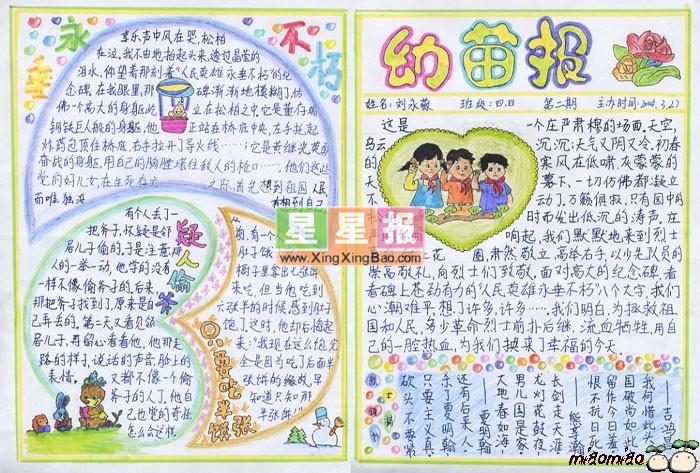 永垂不朽
哀乐声中风在哭,松柏
在泣,我不由地抬起头来,透过晶莹的
泪水,仰望着那刻着“人民英雄永垂不朽”的纪
念碑,在我眼里,那碑渐渐地模糊了,仿
佛一个高大的身躯屹立在松柏之中,它是董存瑞
钢铁巨人般的身躯,他正站在桥底中央,左手托起
炸药包顶住桥底,右手拉开了导火线……;它是黄继光英勇
奋战的身躯,用自己的胸膛堵住敌人的枪口……,他们这些
党的好儿女,在生死存亡之际,首先想到祖国人民
而唯独没有想到自己
疑人偷斧
有个人丢了一
把斧子,怀疑是邻
居儿子偷的,于是注意那
人的一举一动,他守的没有
一样不像偷斧子的,后来,
那把斧子找到了,原来是自
己弄丢的,第二天又看见邻
居儿子,再留心看看他,他那走
路的样子,说话的声音,脸上的
表情,又都不像一个偷
斧子的人了,他自
己也觉的奇怪
怎么会这样.
只要吃半张饼
有一个
肚子饿
柜子里拿出七张饼
来吃,但当他吃到
张半的时候,感到肚子
饱了,这时,他却后悔起
来:“我现在这么饱完
全是因为吃了后面半
张饼的缘故,早
知道只吃那
半张饼
星星报
www.XingXingBao.com
幼苗报
姓名:刘永薇 班级:四.四 第二期 主办时间:2004.3.27
这是一个庄严肃穆的场面,天空,
乌云沉沉;天气又阴又冷,初春
的寒风在低啸,灰蒙蒙的
天幕下,一切仿佛都凝
不动了,万籁俱寂,只有园中的
松时而发出低沉的涛声,在
响起,我们默默地来到烈士
花圈,肃然敬立,高举右手,以少先队员的
崇高敬礼,向烈士们致敬,面对高大的纪念碑,看
着碑上苍劲有力的“人民英雄永垂不朽”八个大字,我们
心潮难平,想了许多,许多……,我们明白,为拯救祖
国和人民,多少革命烈士前扑后继,流血牺牲,用自
己的一腔热血,为我们换来了幸福的今天
烈士诗抄
——吉鸿昌
我何惜此头
国破尚如此
留作今日羞
恨不抗日死
——熊亨瀚
天涯走风雪
长剑倚天吼
男儿国是家
大地春如海
——夏明翰
还有后来人
杀了夏明翰
只要主义真
砍头不要紧
miaomiao